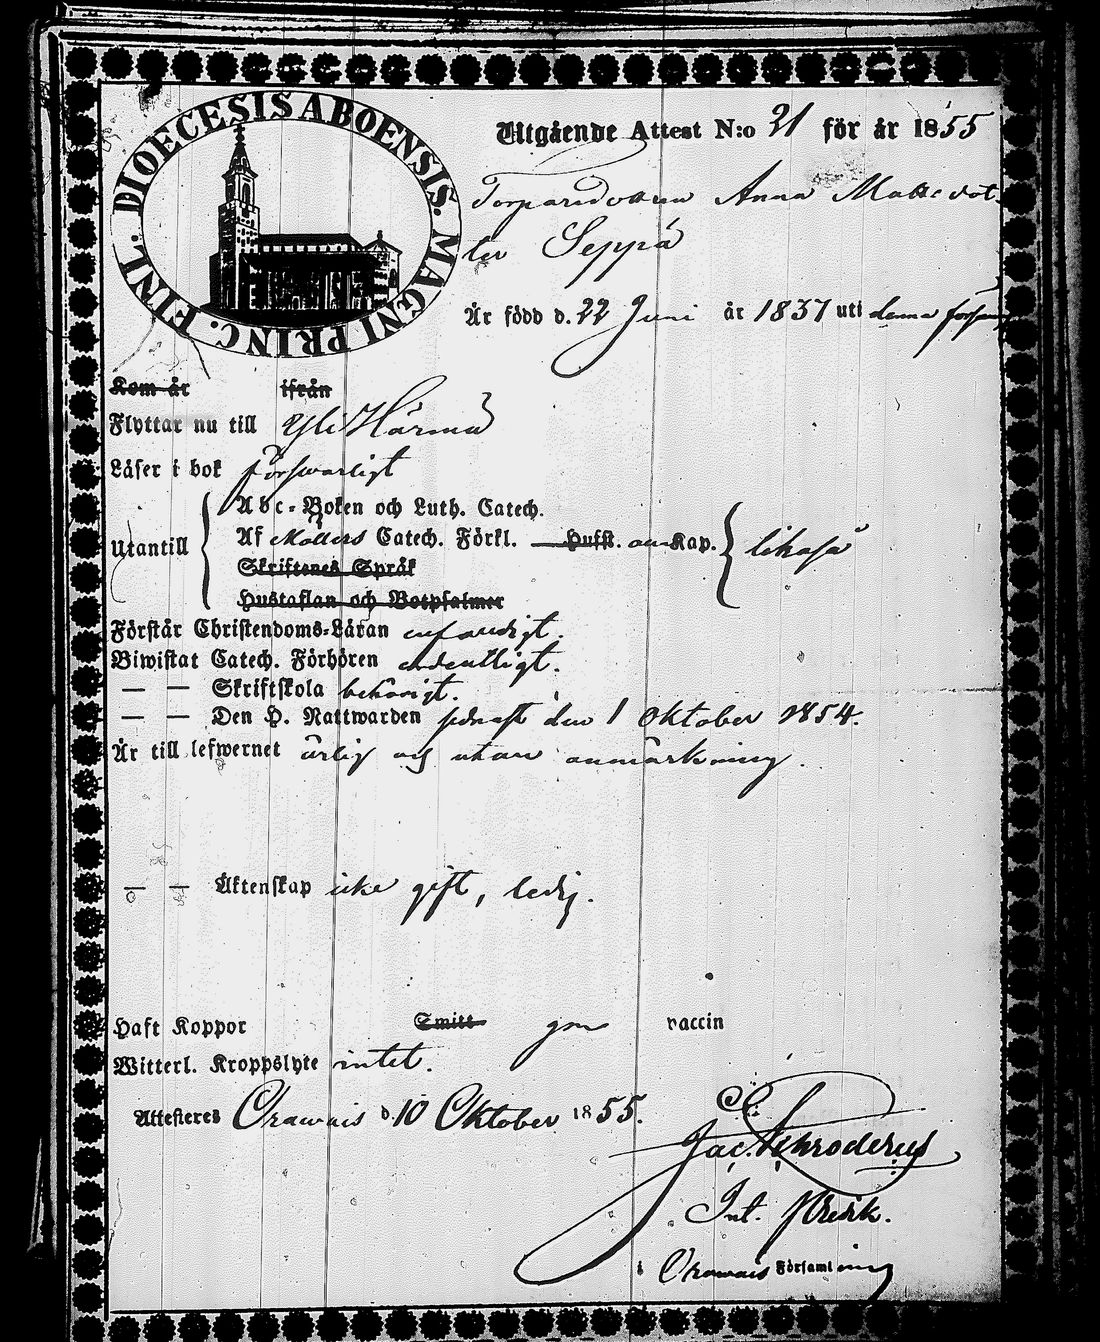 DIOECESIS ABOENSIS. MAGNI PRINC. FINL.
Utgående Attest N:o 21 för år 1855
Torparedottren Anna Mattsdot
ter Seppä
Är född d. 22 Juni år 1837 uti denna förs
Kom år ifrån
Flyttar nu till Yli Härmä
Läser i bok förswarligt
Utantill
Abc-Boken och Luth. Catech.
Af Möllers Catech. Förkl. Husst. Kap. likaså
Skriftenes Språk
Hustaflan och Botpsalmer
Förstår Christendoms-Läran
Biwistat Catech. Förhören ordentligt.
— — Skriftskola behörigt.
— — Den H. Nattwarden sednast den 1 Oktober 1854.
Är till lefwernet ärlig och utan anmärkning.
— — Äktenskap icke gift, ledig.
Haft Koppor Smitt gm vaccin
Witterl. Kroppslyte intet.
Attesteres Orawais d. 10 Oktober 1855.
Jac. Schroderus
Int.
i Orawais Församling